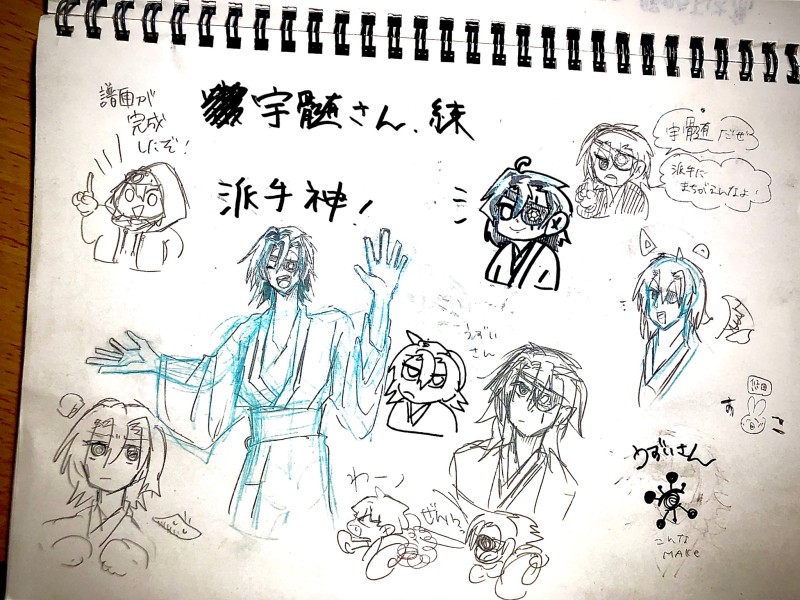 宇髄さん、練
派手神！
譜面が
完成
したぞ！
宇髄だぜ
派手に
まちがえんなよ！
うずい
さん
わーっ
ぜんいつ
うずいさん
こんな
MAKE